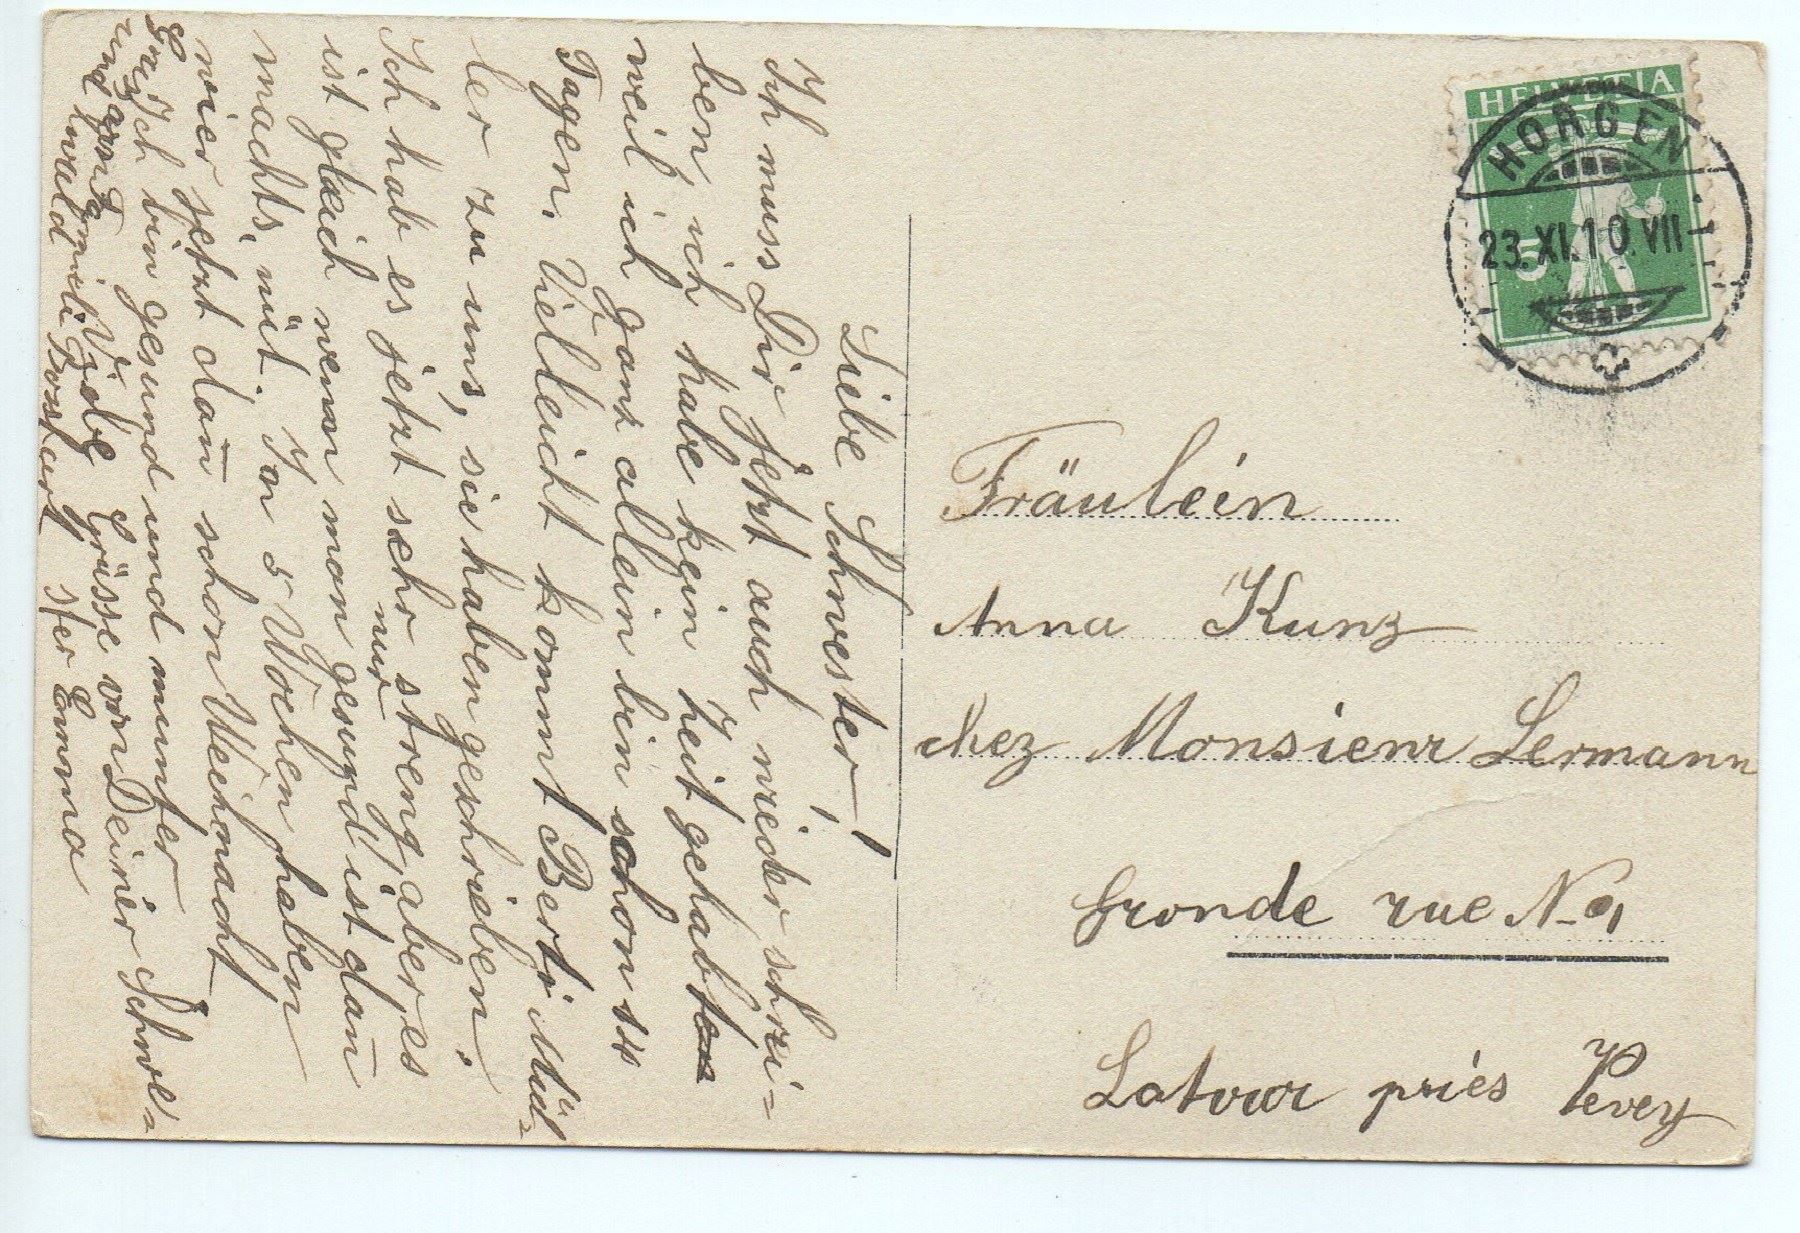 Liebe Schwester!
Ich muss Dir jetzt auch wieder schrei=
ben, ich habe kein Zeit gehabt
weil ich ganz allein bin schon 14
Tagen. Vielleicht kommt Berti Mül=
ler zu uns, sie haben geschrieben.
Ich hab es jetzt sehr streng, aber es
ist gleich wenn man nur gesund ist dan̄
machts nüt. In 5 Wochen haben
wier jetzt dan̄ schon Weihnacht
Ich bin gesund und munter
Viele Grüsse von Deiner Schwe=
ster Emma
Grez
und
Emili Bossert
HELVETIA
5
HORGEN
23.XI.10.VII
Fräulein
Anna Kunz
chez Monsieur Lermann
Gronde rue No 1
Latour priés Vevey